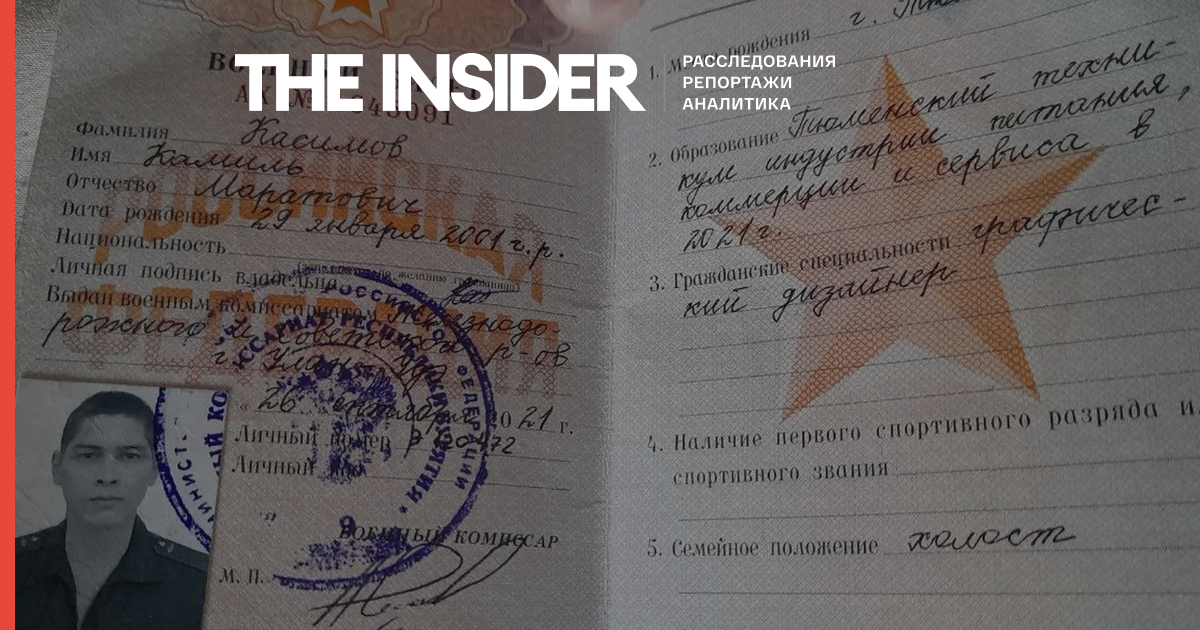 THE INSIDER
РАССЛЕДОВАНИЯ
РЕПОРТАЖИ
АНАЛИТИКА
Фамилия Касимов
Имя Камиль
Отчество Маратович
Дата рождения 29 января 2001 г.р.
Национальность
Личная подпись владельца
Выдан военным комиссариатом Железнодо-
рожного и Советского р-ов
г. Улан-Удэ
21 г.
Личный номер
Личный
ВОЕННЫЙ КОМИССАР
М. П.
г.
1. рождения
2. Образование Тюменский техни-
кум индустрии питания,
коммерции и сервиса в
2021 г.
3. Гражданские специальности графичес-
кий дизайнер
4. Наличие первого спортивного разряда и
спортивного звания
5. Семейное положение холост